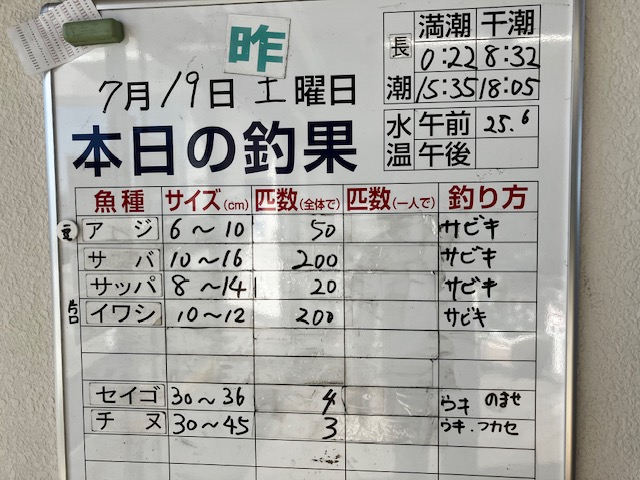 昨
7月19日土曜日
本日の釣果
長潮 満潮 干潮
0:22 8:32
15:35 18:05
水温 午前 25.6
午後
魚種 サイズ(cm) 匹数(全体で) 匹数(一人で) 釣り方
豆 アジ 6〜10 50 サビキ
サバ 10〜16 200 サビキ
サッパ 8〜14 20 サビキ
片口 イワシ 10〜12 200 サビキ
セイゴ 30〜36 4 ウキ のませ
チヌ 30〜45 3 ウキ.フカセ